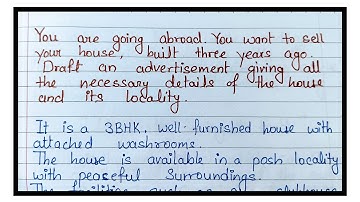 You are going abroad. You want to sell
your house, built three years ago.
Draft an advertisement giving all
the necessary details of the house
and its locality.
It is a 3BHK, well-furnished house with
attached washrooms.
The house is available in a posh locality
with peaceful surroundings.
The facilities such as